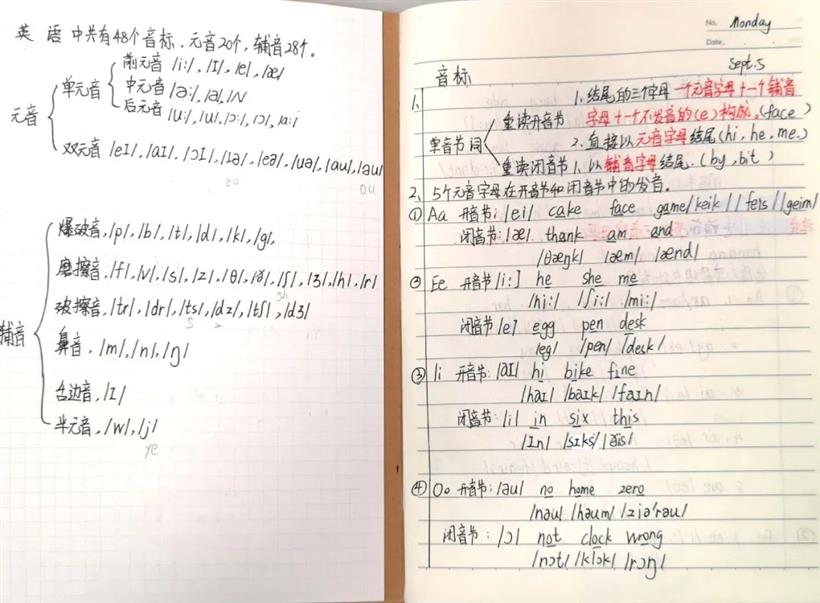 英 语 中共有48个音标.元音20个,辅音28个。
元音
单元音
前元音 /i:/,/I/,/e/,/æ/
中元音 /ə:/,/ə/,/ʌ/
后元音 /u:/,/u/,/ɔ:/,/ɔ/,/a:/
双元音 /eI/,/aI/,/ɔI/,/Iə/,/eə/,/uə/,/au/,/əu/
eo
ou
辅音
爆破音,/p/,/b/,/t/,/d/,/k/,/g/,
磨擦音,/f/,/v/,/s/,/z/,/θ/,/ð/,/ʃ/,/ʒ/,/h/,/r/
sh
破擦音,/tr/,/dr/,/ts/,/dz/,/tʃ/,/dʒ/
s z
鼻音,/m/,/n/,/ŋ/
舌边音,/I/
半元音,/w/,/j/
ye
No. Monday
Date. Sept.5
音标
1、
单音节词
重读开音节
1.结尾的三个字母一个元音字母+一个辅音
字母+一个不发音的(e)构成。(face)
2.直接以元音字母结尾(hi,he,me.)
重读闭音节 1.以辅音字母结尾.(by,bit)
2、5个元音字母在开音节和闭音节中的发音。
① Aa 开音节:/ei/ cake face game/keik//feis//geim/
闭音节:/æ/ thank am and
/θæŋk/ /æm/ /ænd/
② Ee 开音节/i:] he she me
/hi:/ /ʃi:/ /mi:/
闭音节/e] egg pen desk
/eg/ /pen/ /desk/
③ Ii 开音节:/aI/ hi bike fine
/haI/ /baIk/ /faIn/
闭音节:/i/ in six this
/In/ /sIks/ /ðis/
④ Oo 开音节:/əu/ no home zero
/nəu/ /həum/ /ziə'rəu/
闭音节:/ɔ/ not clock wrong
/nɔt/ /klɔk/ /rɔŋ/